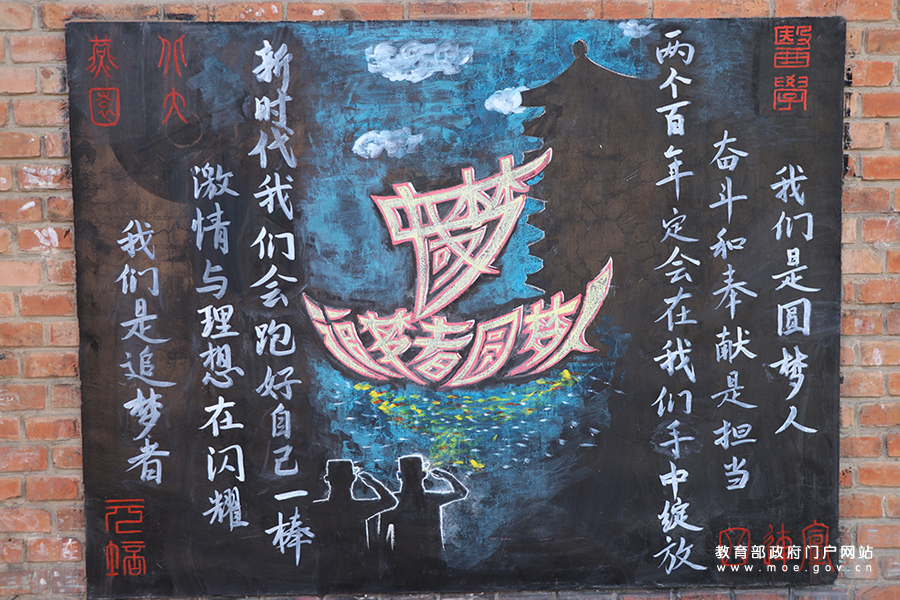 醫學
我们是圆梦人
奋斗和奉献是担当
两个百年定会在我们手中绽放
中国梦
追梦者圆梦人
新时代我们会跑好自己一棒
激情与理想在闪耀
我们是追梦者
北大
燕园
教育部政府门户网站
www.moe.gov.cn